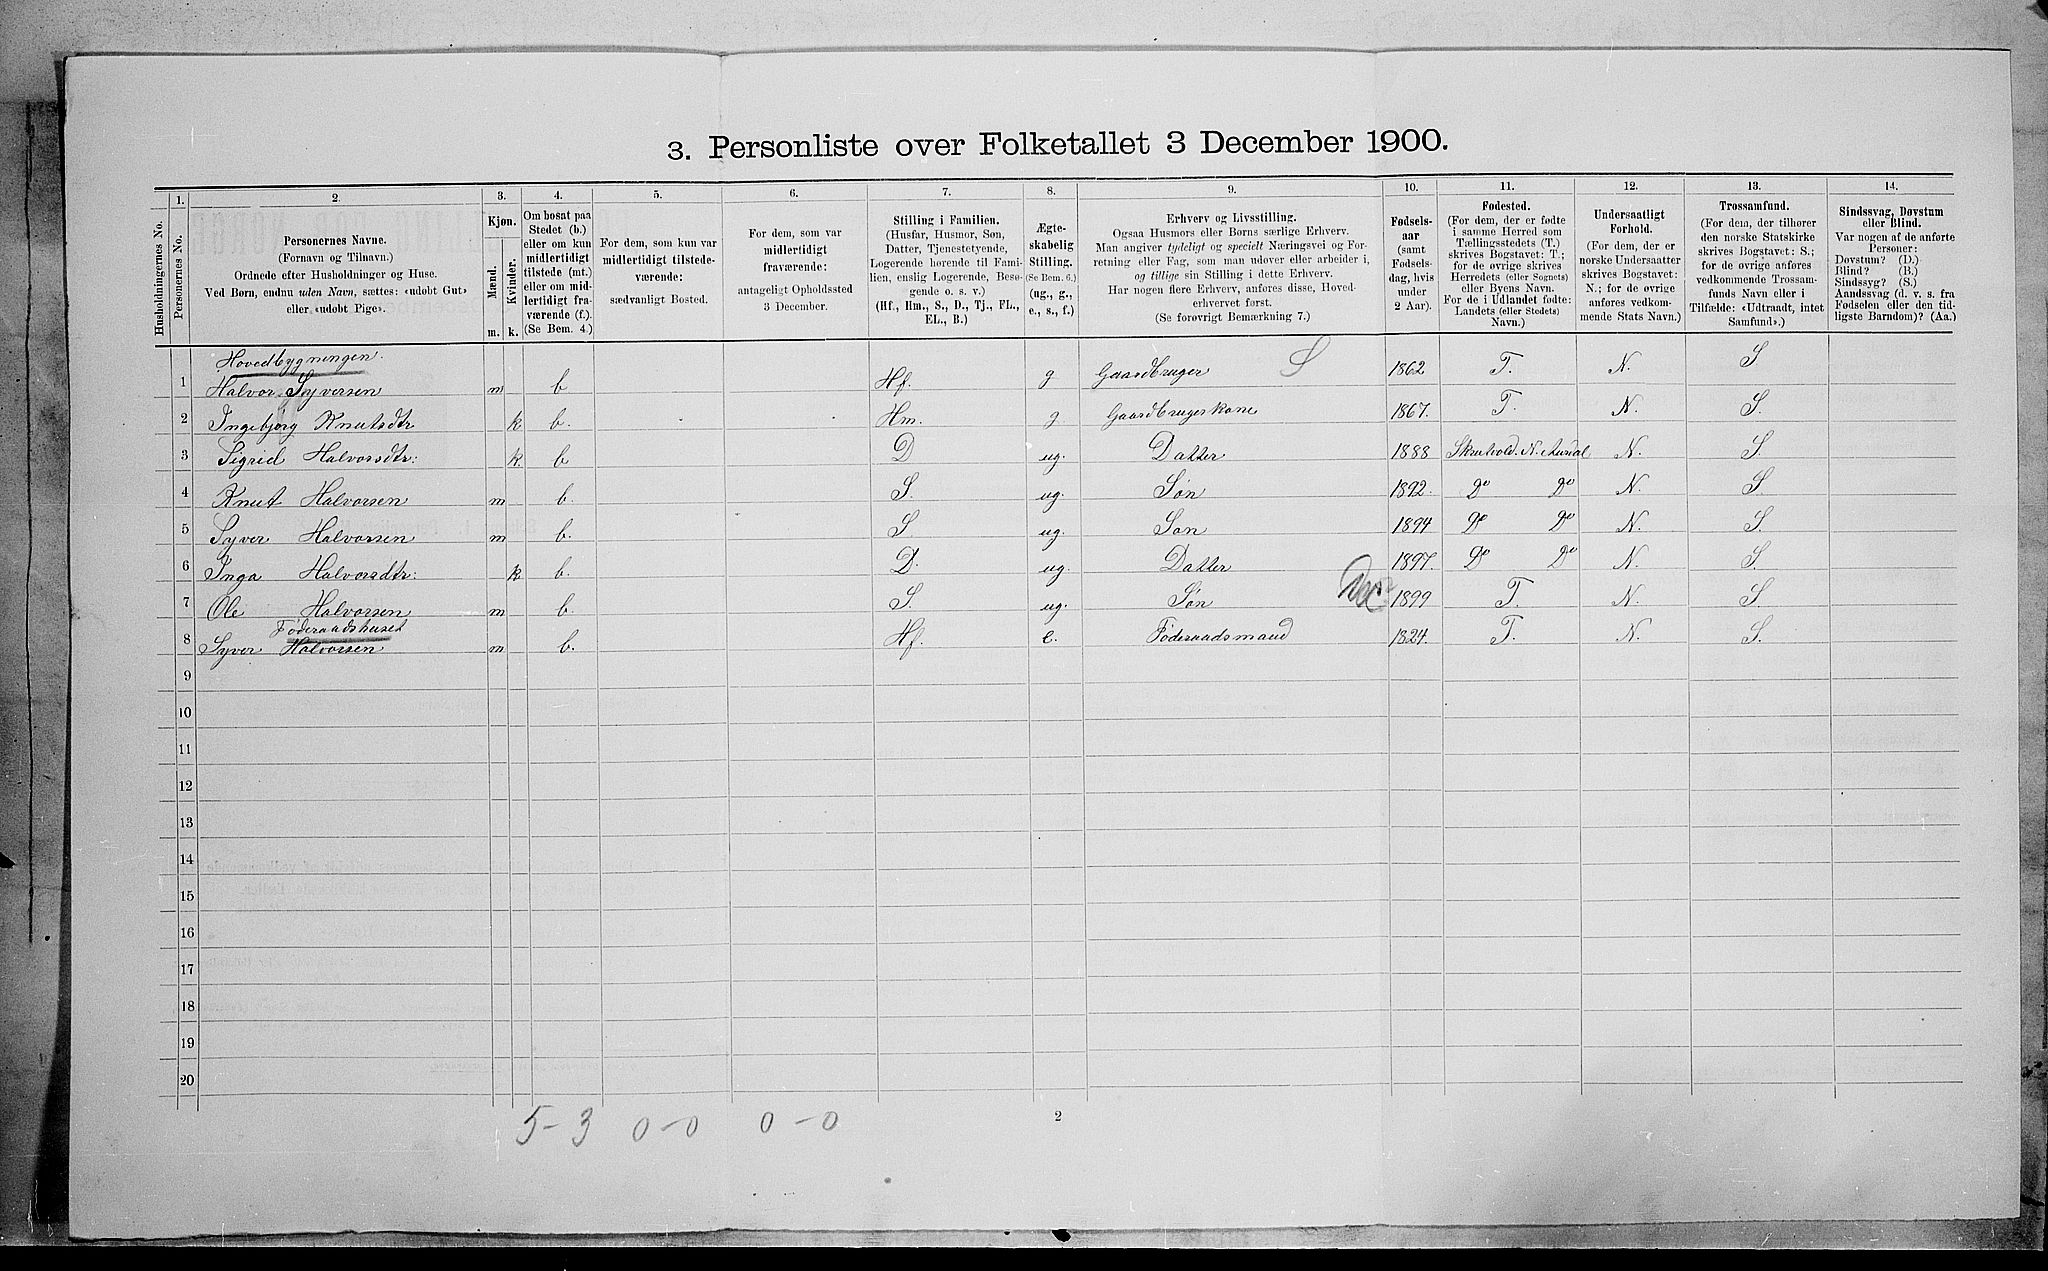 3. Personliste over Folketallet 3 December 1900.
1. 2. 3. 4. 5. 6. 7. 8. 9. 10. 11. 12. 13. 14.
Husholdningernes No.
Personernes No.
Personernes Navne.
(Fornavn og Tilnavn.)
Ordnede efter Husholdninger og Huse.
Ved Børn, endnu uden Navn, sættes: «udøbt Gut»
eller «udøbt Pige».
Kjøn.
Mænd.
Kvinder.
m. k.
Om bosat paa
Stedet (b.)
eller om kun
midlertidigt
tilstede (mt.)
eller om mid-
lertidigt fra-
værende (f.).
(Se Bem. 4.)
For dem, som kun var
midlertidigt tilstede-
værende:
sædvanligt Bosted.
For dem, som var
midlertidigt
fraværende:
antageligt Opholdssted
3 December.
Stilling i Familien.
(Husfar, Husmor, Søn,
Datter, Tjenestetyende,
Logerende hørende til Fami-
lien, enslig Logerende, Besø-
gende o. s. v.)
(Hf., Hm., S., D., Tj., FL.,
EL., B.)
Ægte-
skabelig
Stilling.
(Se Bem. 6.)
(ug., g.,
e., s., f.)
Erhverv og Livsstilling.
Ogsaa Husmors eller Børns særlige Erhverv.
Man angiver tydeligt og specielt Næringsvei og For-
retning eller Fag, som man udøver eller arbeider i,
og tillige sin Stilling i dette Erhverv.
Har nogen flere Erhverv, anføres disse, Hoved-
erhvervet først.
(Se forøvrigt Bemærkning 7.)
Fødsels-
aar
(samt
Fødsels-
dag, hvis
under
2 Aar).
Fødested.
(For dem, der er fødte
i samme Herred som
Tællingsstedets (T.)
skrives Bogstavet: T.;
for de øvrige skrives
Herredets (eller Sognets)
eller Byens Navn.
For de i Udlandet fødte:
Landets (eller Stedets)
Navn.)
Undersaatligt
Forhold.
(For dem, der er
norske Undersaatter
skrives Bogstavet:
N.; for de øvrige
anføres vedkom-
mende Stats Navn.)
Trossamfund.
(For dem, der tilhører
den norske Statskirke
skrives Bogstavet: S.;
for de øvrige anføres
vedkommende Trossam-
funds Navn eller i
Tilfælde: «Udtraadt, intet
Samfund».)
Sindssvag, Døvstum
eller Blind.
Var nogen af de anførte
Personer:
Døvstum? (D.)
Blind? (B.)
Sindssyg? (S.)
Aandssvag (d. v. s. fra
Fødselen eller den tid-
ligste Barndom)? (Aa.)
Hovedbygningen.
1 Halvor Syversen m b Hf. g Gaardbruger S 1862 T. N. S
2 Ingebjørg Knutsdtr k b. Hm. g Gaardbrugerkone 1867. T. N. S.
3 Sigrid Halvorsdtr: k. b D ug. Datter 1888 Skrutvold. N. Aurdal N. S.
4 Knut Halvorsen m b. S. ug. Søn 1892. Do Do N. S.
5 Syver Halvorsen m b. S ug. Søn 1894 Do Do N. S.
6 Inga Halvorsdtr: k b. D. ug. Datter 1897. Do Do N. S.
7 Ole Halvorsen m b. S. ug. Søn 1899 T. N. S.
Føderaadshuset
8 Syver Halvorsen m b. Hf. e. Føderaadsmand 1824. T. N. S.
9
10
11
12
13
14
15
16
17
18
19
20
5-3 0-0 0-0
2